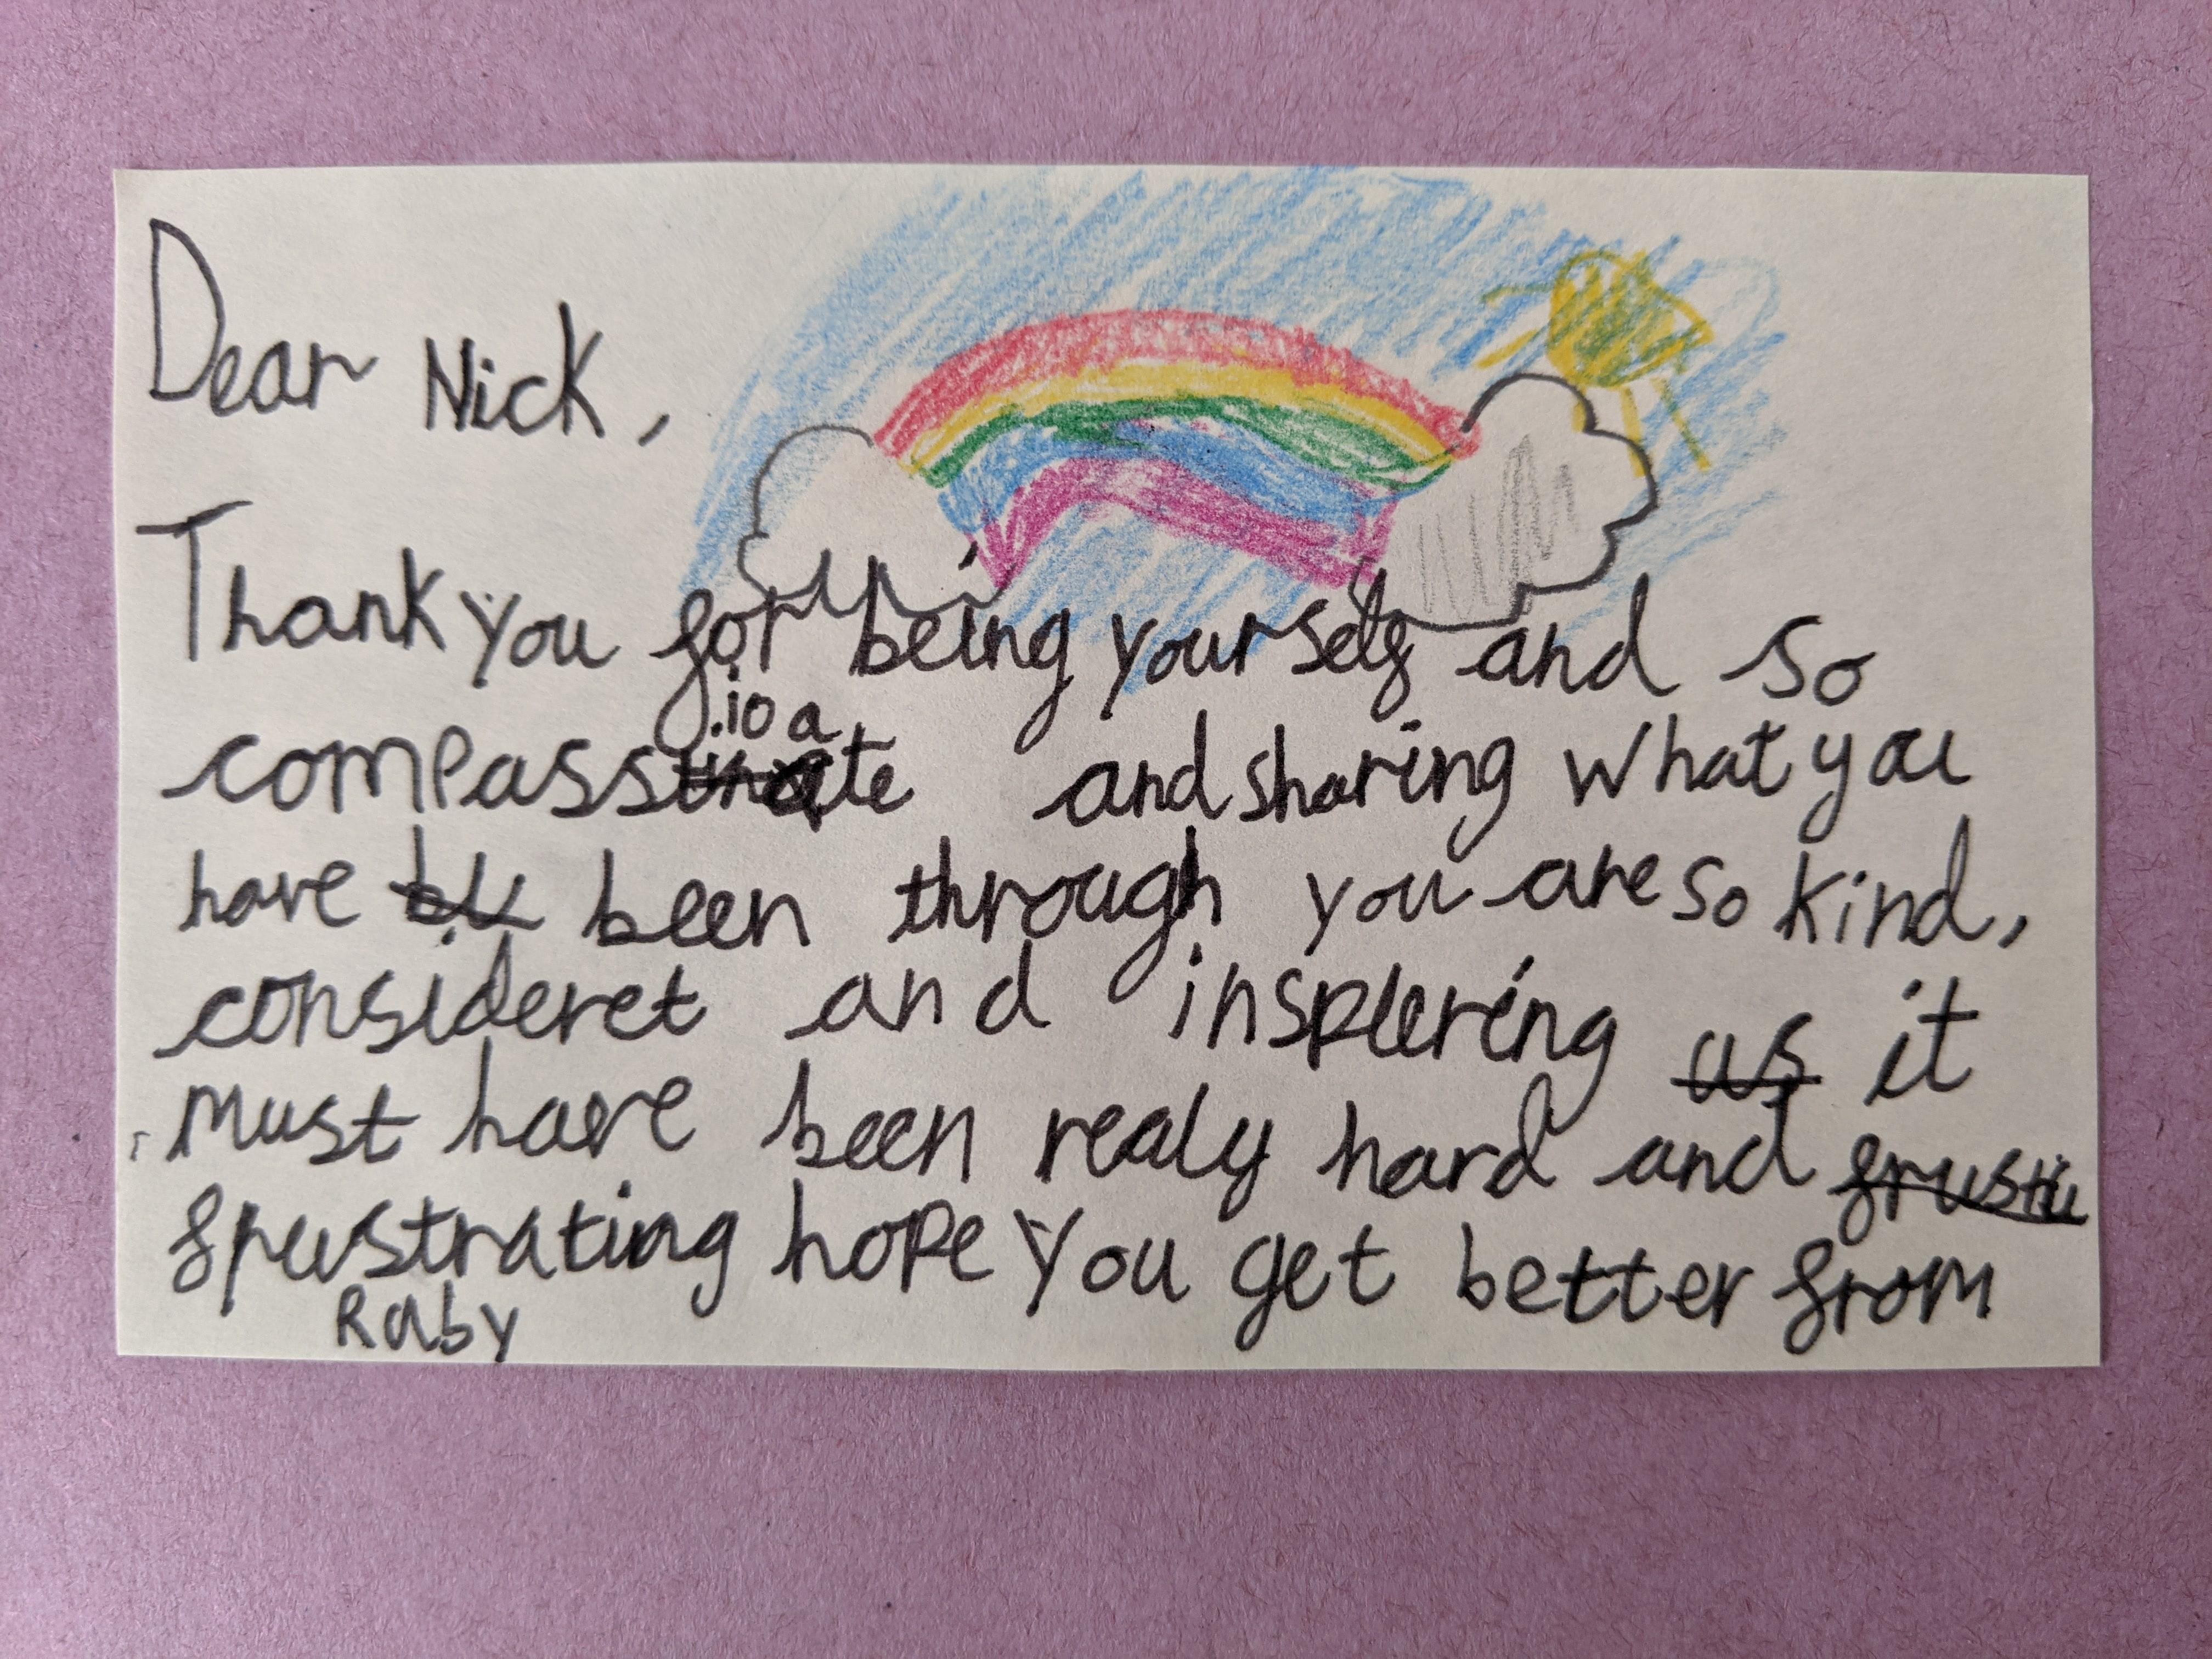 Dear Nick,
Thank you for being yourself and so
compassioate and sharing what you
have been through you are so kind,
consideret and inspiering it
must have been realy hard and
frustrating hope you get better from
Ruby